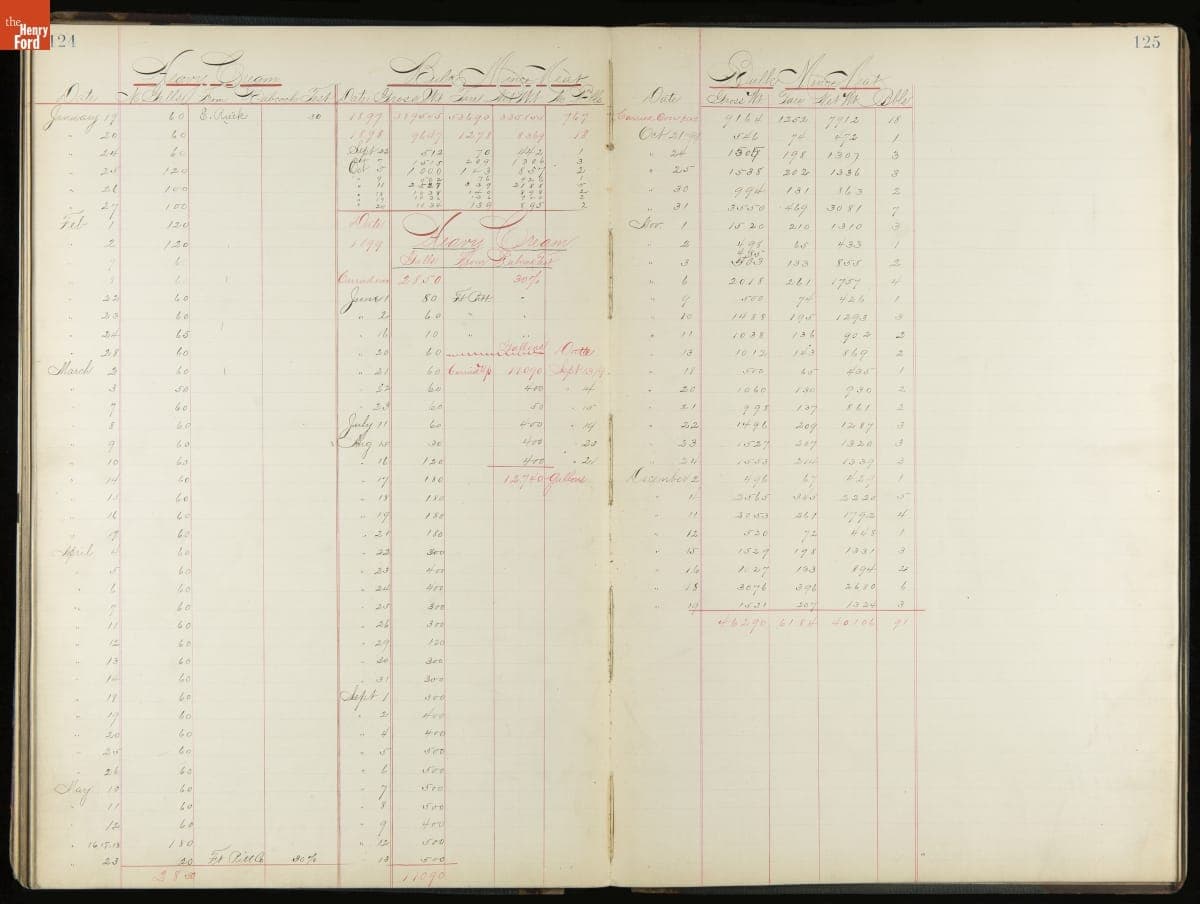 the Henry Ford
124
Heavy Cream
Date Galls From Babcock Test
January 19 60 E. Rick 30
" 20 60
" 24 60
" 25 120
" 26 100
" 27 100
Feb 1 120
" 2 120
" 22 60
" 23 60
" 24 65
" 28 60
March 2 60
" 3 50
" 7 60
" 8 60
" 9 60
" 10 60
" 14 60
" 15 60
" 16 60
" 60
April 4 60
" 5 60
" 6 60
" 7 60
" 11 60
" 12 60
" 13 60
" 14 60
" 18 60
" 19 60
" 20 60
" 25 60
" 26 60
May 10 60
" 11 60
" 12 60
" 16 17 18 180
" 23 20 Ft Pitt Co 30%
2850
Bulk Mince Meat
Date Gross Wt Tare Net Wt Bbls
1897 767
1898 9647 1278 8369 18
Sept 22 512 70 442 1
1515 209 1306 3
Oct 5 1000 143 857 2
" 20 1034 139 895 2
Date
1899
Heavy Cream
Galls From Babcock Test
Carried over 2850 30%
June 1 80 Ft Pitt "
" 2 60 " "
" 16 10 " "
" 20 60 Gallons Date
" 21 60 Carried Up 11090 Sept 13/9
" 22 60 400 " 14
" 23 60 50 " 15
July 11 60 400 " 19
Aug 15 30 400 " 20
" 16 120 400 " 21
" 17 180 12740 Gallons
" 18 180
" 19 180
" 21 180
" 22 300
" 23 400
" 24 400
" 25 300
" 26 300
" 29 120
" 30 300
" 31 300
Sept 1 300
" 2 400
" 4 400
" 5 500
" 6 500
" 7 500
" 8 500
" 9 400
" 12 500
" 13 500
11090
125
Bulk Mince Meat
Date Gross Wt Tare Net Wt Bbls
Carried Over 9164 1252 7912 18
Oct 21 546 74 472 1
" 24 1505 198 1307 3
" 25 1538 202 1336 3
" 30 994 131 863 2
" 31 3550 469 3081 7
Nov. 1 1520 210 1310 3
" 2 498 65 433 1
" 3 133 855 2
" 6 2018 261 1757 4
" 9 500 74 426 1
" 10 1488 195 1293 3
" 11 1038 136 902 2
" 13 1012 143 869 2
" 18 500 65 435 1
" 20 1060 130 930 2
" 21 998 137 861 2
" 22 1496 209 1287 3
" 23 1527 207 1320 3
" 24 1553 214 1339 3
December 2 496 67 429 1
" 2565 345 2220 5
" 11 2053 261 1792 4
" 12 520 72 448 1
" 15 1529 198 1331 3
" 16 1027 133 894 2
" 18 3076 396 2680 6
" 19 1531 207 1324 3
46290 6184 40106 91